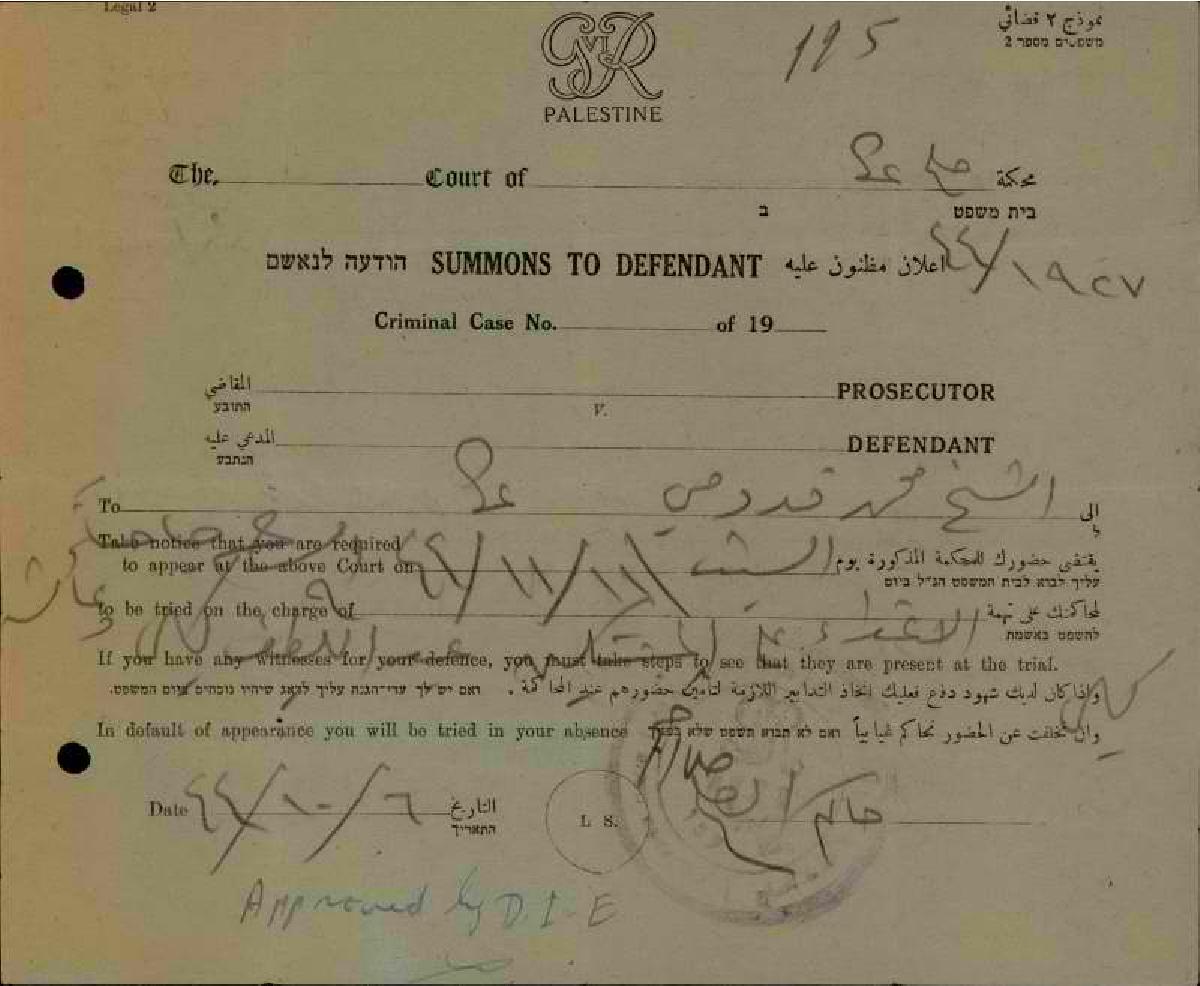 Legal 2
نموذج ٢ قضائي
משפטים מספר 2
195
G VI R
PALESTINE
The Court of محكمة صلح عكا
בית משפט ב
הודעה לנאשם SUMMONS TO DEFENDANT اعلان مظنون عليه ١٩٢٧/٤٤
Criminal Case No. of 19
المقاضي PROSECUTOR
התובע
v.
المدعى عليه DEFENDANT
הנתבע
To الشيخ محمد قدومي عكا الى
ל
Take notice that you are required
to appear at the above Court on السبت ١١/١١/٤٤ يقتضي حضورك للمحكمة المذكورة يوم
עליך לבוא לבית המשפט הנ"ל ביום
to be tried on the charge of الاعتداء على لمحاكمتك على تهمة
להשפט באשמת
If you have any witnesses for your defence, you must take steps to see that they are present at the trial.
واذا كان لديك شهود دفع فعليك اتخاذ التدابير اللازمة لتأمين حضورهم عند المحاكمة . ואם יש לך עדי-הגנה עליך לדאג שיהיו נוכחים ביום המשפט.
In default of appearance you will be tried in your absence ואם לא תבוא תשפט שלא בפניך وان تخلفت عن الحضور تحاكم غيابياً
حاكم الصلح
Date ٤٤/١٠/٦ التاريخ
התאריך
L S.
Approved by D I E